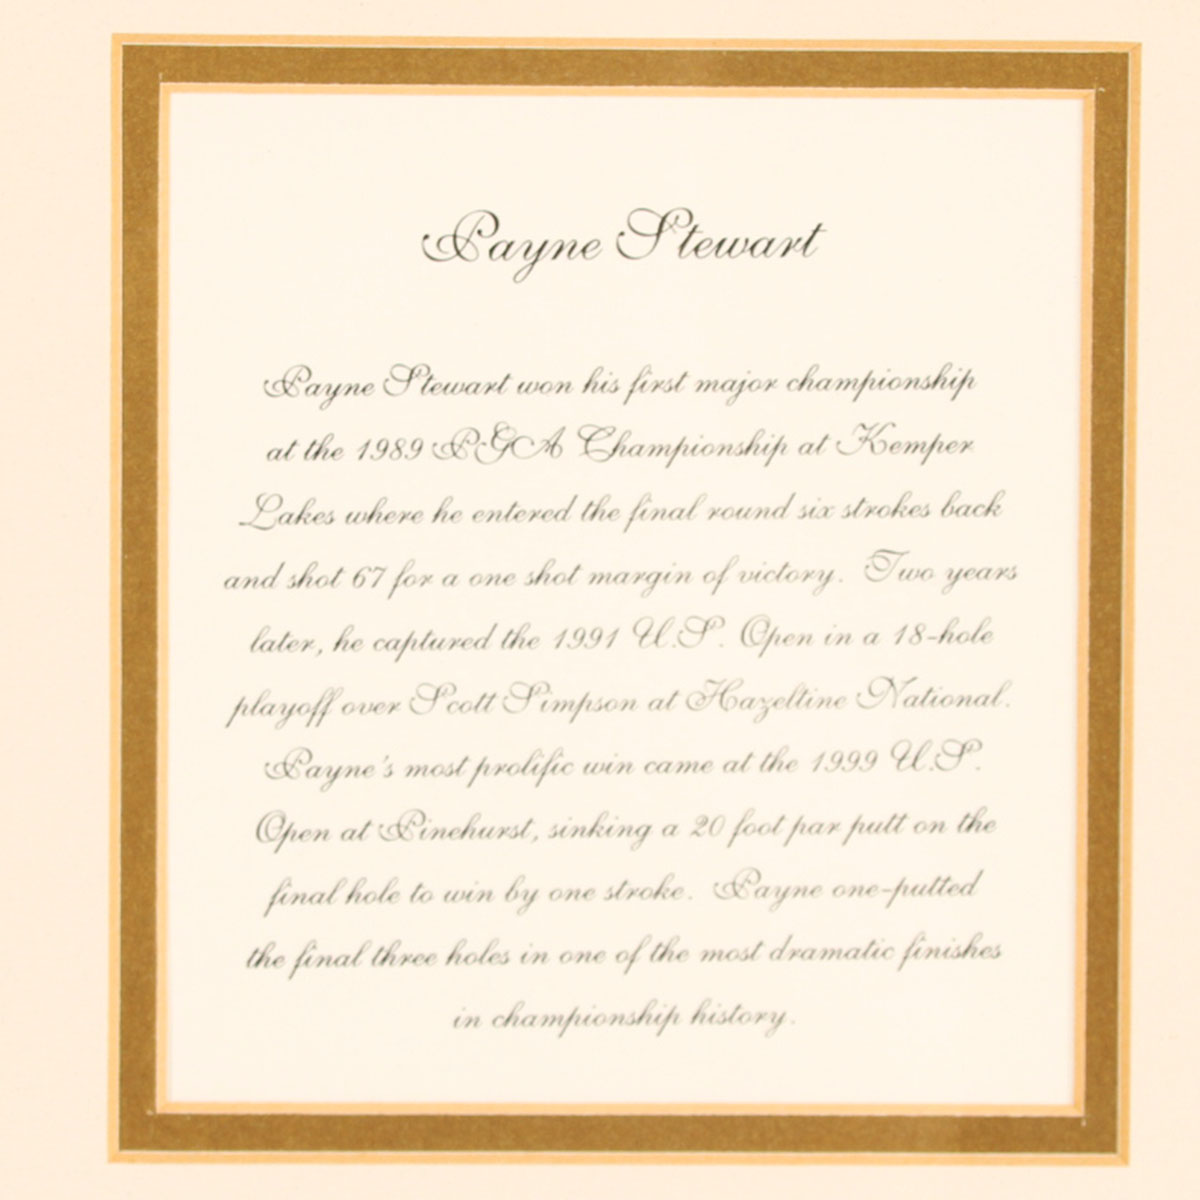 Payne Stewart
Payne Stewart won his first major championship
at the 1989 PGA Championship at Kemper
Lakes where he entered the final round six strokes back
and shot 67 for a one shot margin of victory. Two years
later, he captured the 1991 U.S. Open in a 18-hole
playoff over Scott Simpson at Hazeltine National.
Payne's most prolific win came at the 1999 U.S.
Open at Pinehurst, sinking a 20 foot par putt on the
final hole to win by one stroke. Payne one-putted
the final three holes in one of the most dramatic finishes
in championship history.